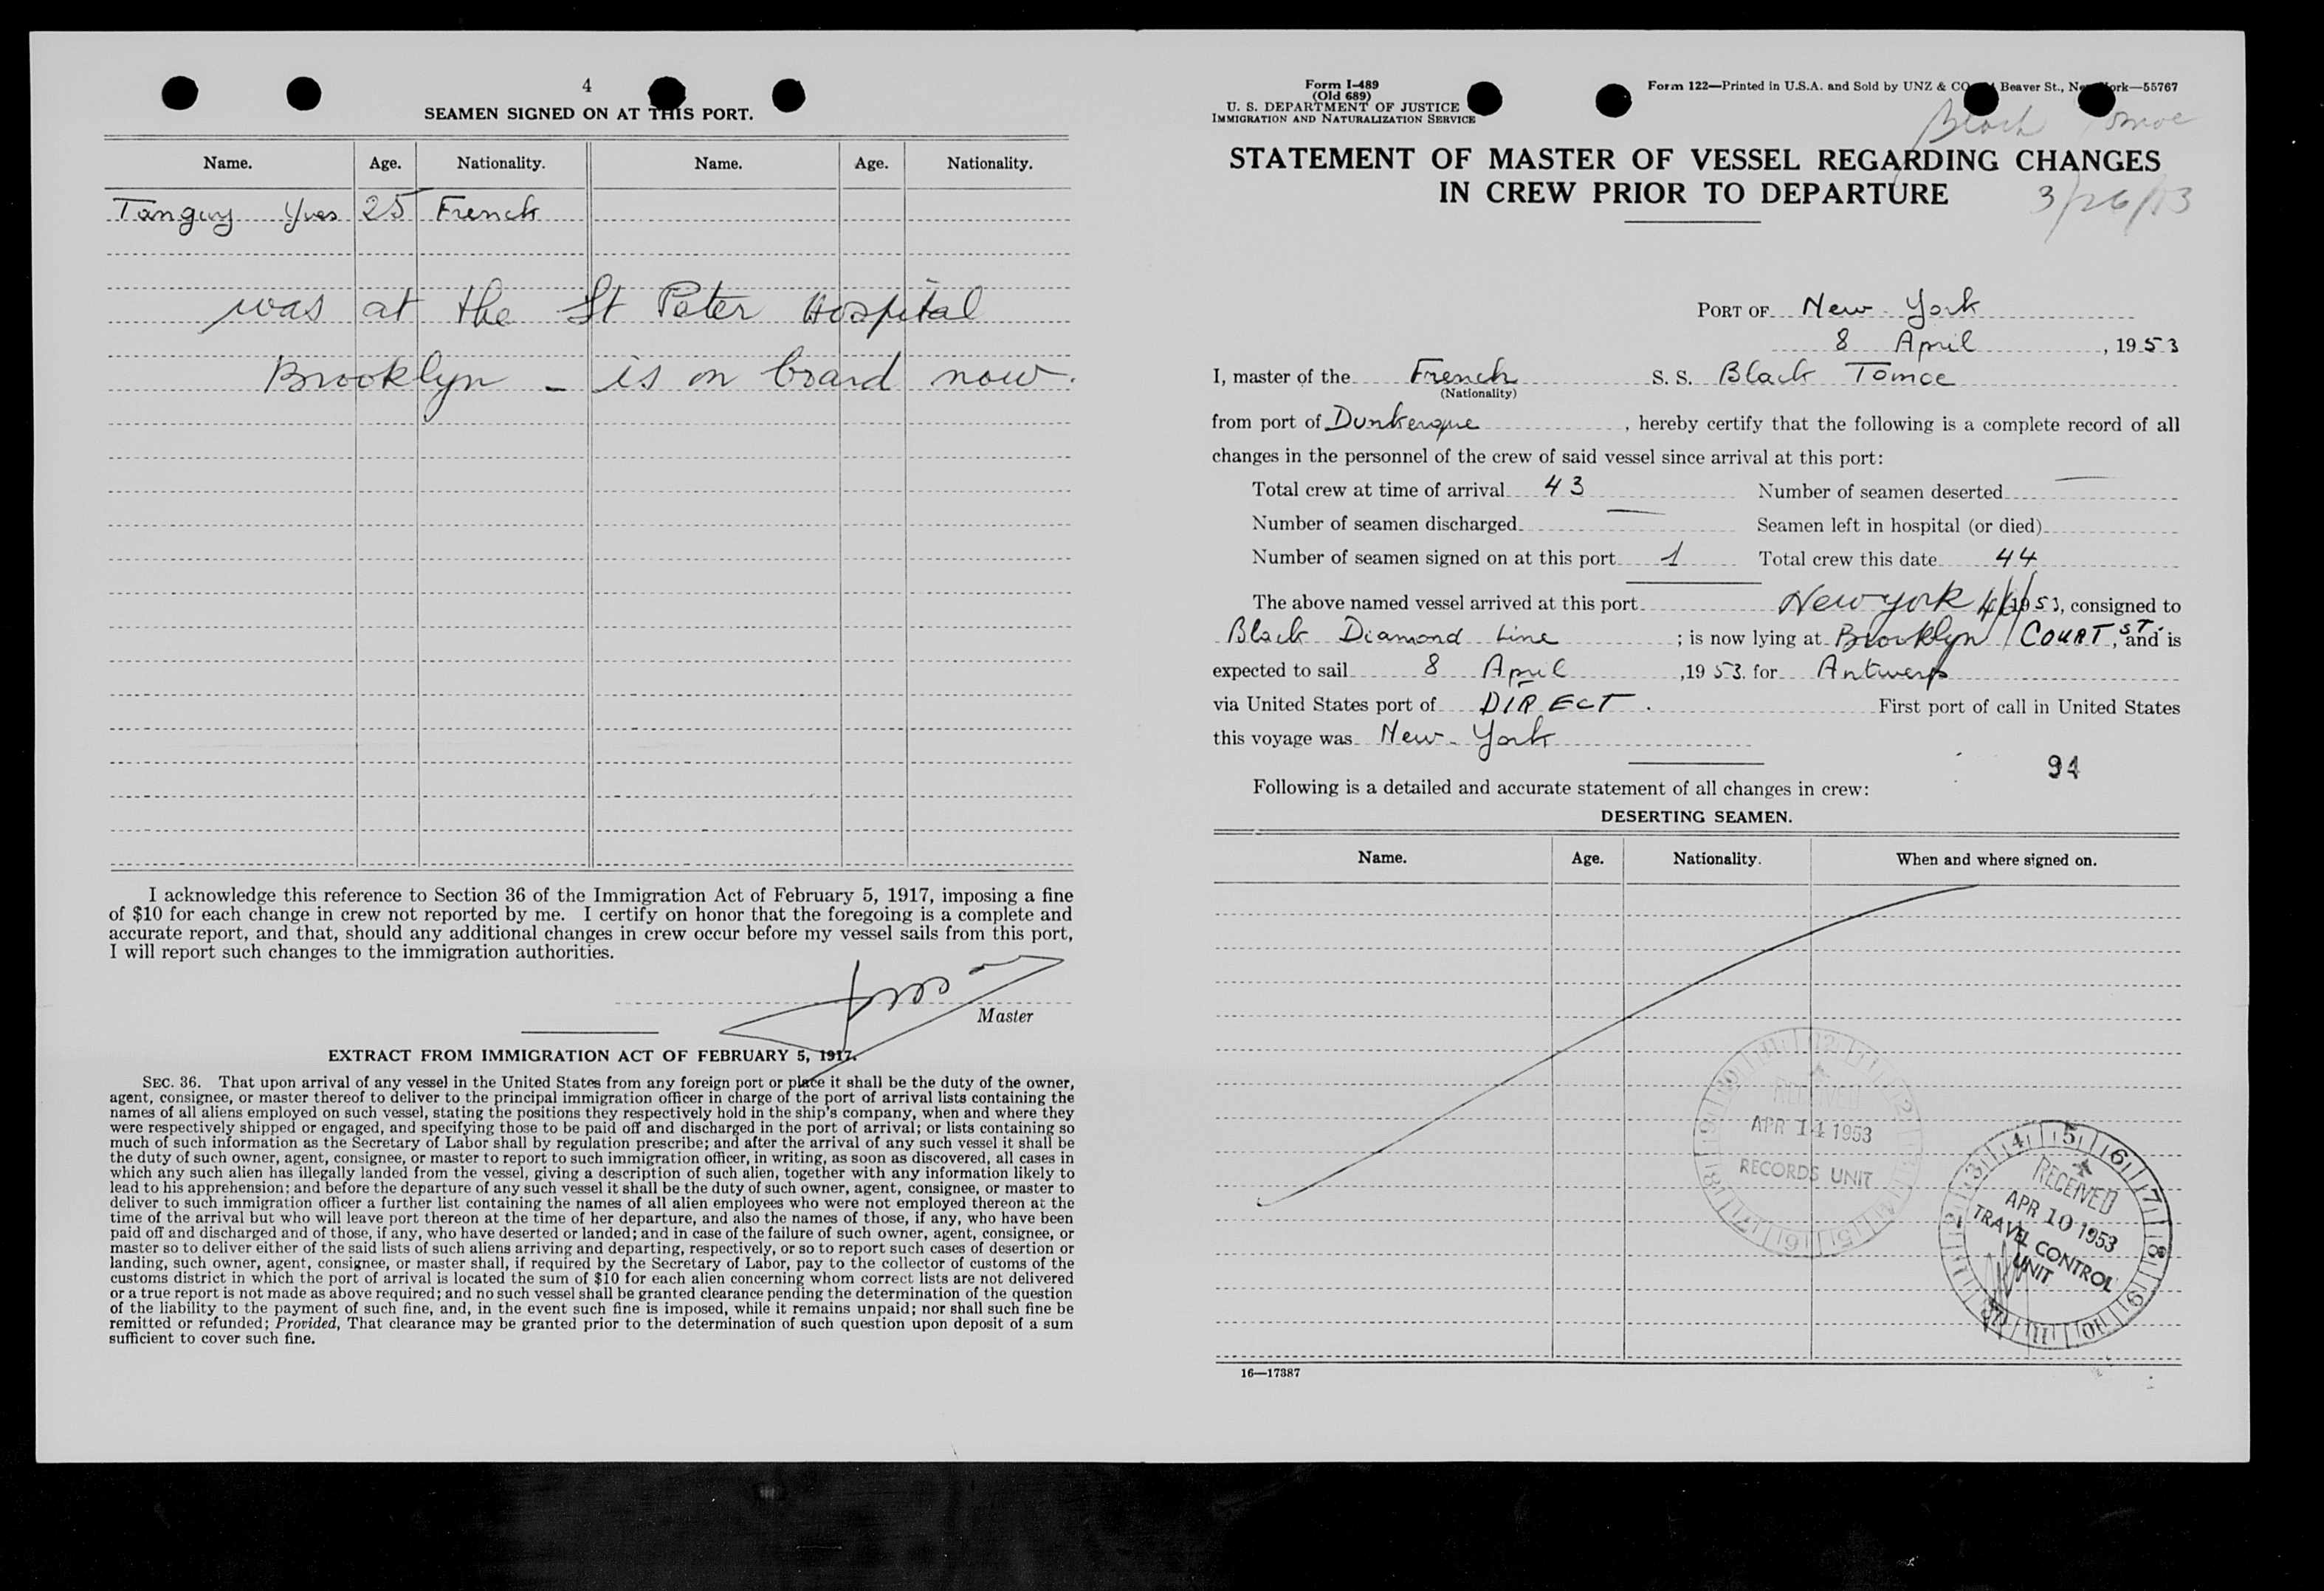 4
SEAMEN SIGNED ON AT THIS PORT.
Name. Age. Nationality. Name. Age. Nationality.
Tanguy Yves 25 French
was at the St Peter Hospital
Brooklyn - is on board now.
I acknowledge this reference to Section 36 of the Immigration Act of February 5, 1917, imposing a fine
of $10 for each change in crew not reported by me. I certify on honor that the foregoing is a complete and
accurate report, and that, should any additional changes in crew occur before my vessel sails from this port,
I will report such changes to the immigration authorities.
Master
EXTRACT FROM IMMIGRATION ACT OF FEBRUARY 5, 1917.
SEC. 36. That upon arrival of any vessel in the United States from any foreign port or place it shall be the duty of the owner,
agent, consignee, or master thereof to deliver to the principal immigration officer in charge of the port of arrival lists containing the
names of all aliens employed on such vessel, stating the positions they respectively hold in the ship's company, when and where they
were respectively shipped or engaged, and specifying those to be paid off and discharged in the port of arrival; or lists containing so
much of such information as the Secretary of Labor shall by regulation prescribe; and after the arrival of any such vessel it shall be
the duty of such owner, agent, consignee, or master to report to such immigration officer, in writing, as soon as discovered, all cases in
which any such alien has illegally landed from the vessel, giving a description of such alien, together with any information likely to
lead to his apprehension; and before the departure of any such vessel it shall be the duty of such owner, agent, consignee, or master to
deliver to such immigration officer a further list containing the names of all alien employees who were not employed thereon at the
time of the arrival but who will leave port thereon at the time of her departure, and also the names of those, if any, who have been
paid off and discharged and of those, if any, who have deserted or landed; and in case of the failure of such owner, agent, consignee, or
master so to deliver either of the said lists of such aliens arriving and departing, respectively, or so to report such cases of desertion or
landing, such owner, agent, consignee, or master shall, if required by the Secretary of Labor, pay to the collector of customs of the
customs district in which the port of arrival is located the sum of $10 for each alien concerning whom correct lists are not delivered
or a true report is not made as above required; and no such vessel shall be granted clearance pending the determination of the question
of the liability to the payment of such fine, and, in the event such fine is imposed, while it remains unpaid; nor shall such fine be
remitted or refunded; Provided, That clearance may be granted prior to the determination of such question upon deposit of a sum
sufficient to cover such fine.
Form I-489
(Old 689)
U. S. DEPARTMENT OF JUSTICE
IMMIGRATION AND NATURALIZATION SERVICE
Form 122—Printed in U.S.A. and Sold by UNZ & CO Beaver St., New York—55767
Black Tomoe
STATEMENT OF MASTER OF VESSEL REGARDING CHANGES
IN CREW PRIOR TO DEPARTURE
3/26/53
PORT OF New York
8 April, 1953
I, master of the French S. S. Black Tomoe
(Nationality)
from port of Dunkerque, hereby certify that the following is a complete record of all
changes in the personnel of the crew of said vessel since arrival at this port:
Total crew at time of arrival 43 Number of seamen deserted —
Number of seamen discharged — Seamen left in hospital (or died)
Number of seamen signed on at this port 1 Total crew this date 44
The above named vessel arrived at this port New York 1953, consigned to
Black Diamond Line; is now lying at Brooklyn / COURT ST., and is
expected to sail 8 April, 1953. for Antwerp
via United States port of DIRECT. First port of call in United States
this voyage was New-York
94
Following is a detailed and accurate statement of all changes in crew:
DESERTING SEAMEN.
Name. Age. Nationality. When and where signed on.
RECEIVED
APR 14 1953
RECORDS UNIT
RECEIVED
APR 10 1953
TRAVEL CONTROL
UNIT
16—17387